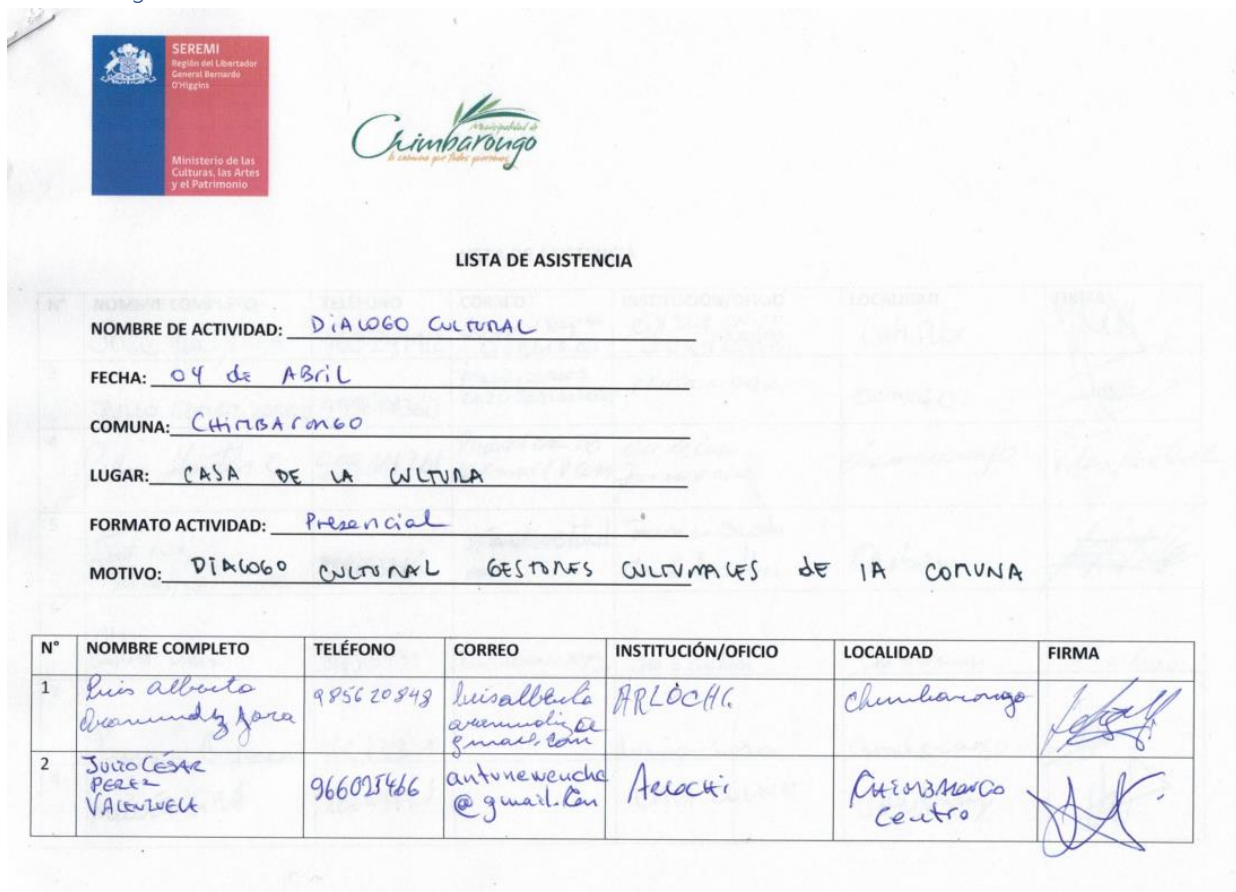 SEREMI
Región del Libertador
General Bernardo
O'Higgins
Ministerio de las
Culturas, las Artes
y el Patrimonio
Municipalidad de
Chimbarongo
LISTA DE ASISTENCIA
NOMBRE DE ACTIVIDAD: DiALOGO CULTURAL
FECHA: 04 de ABril
COMUNA: CHIMBArONGO
LUGAR: CASA DE LA CULTURA
FORMATO ACTIVIDAD: Presencial
MOTIVO: DiALOGO CULTURAL GESTORES CULTURALES dE lA COMUNA
N° NOMBRE COMPLETO TELÉFONO CORREO INSTITUCIÓN/OFICIO LOCALIDAD FIRMA
1 Luis alberto 985620848 luisalberto ARLOCHI. Chimbarongo
gmail.com
2 JULIO CÉSAR PEREZ 966095466 antunewencha @ gmail.com Arlochi CHIMBARONGO Centro